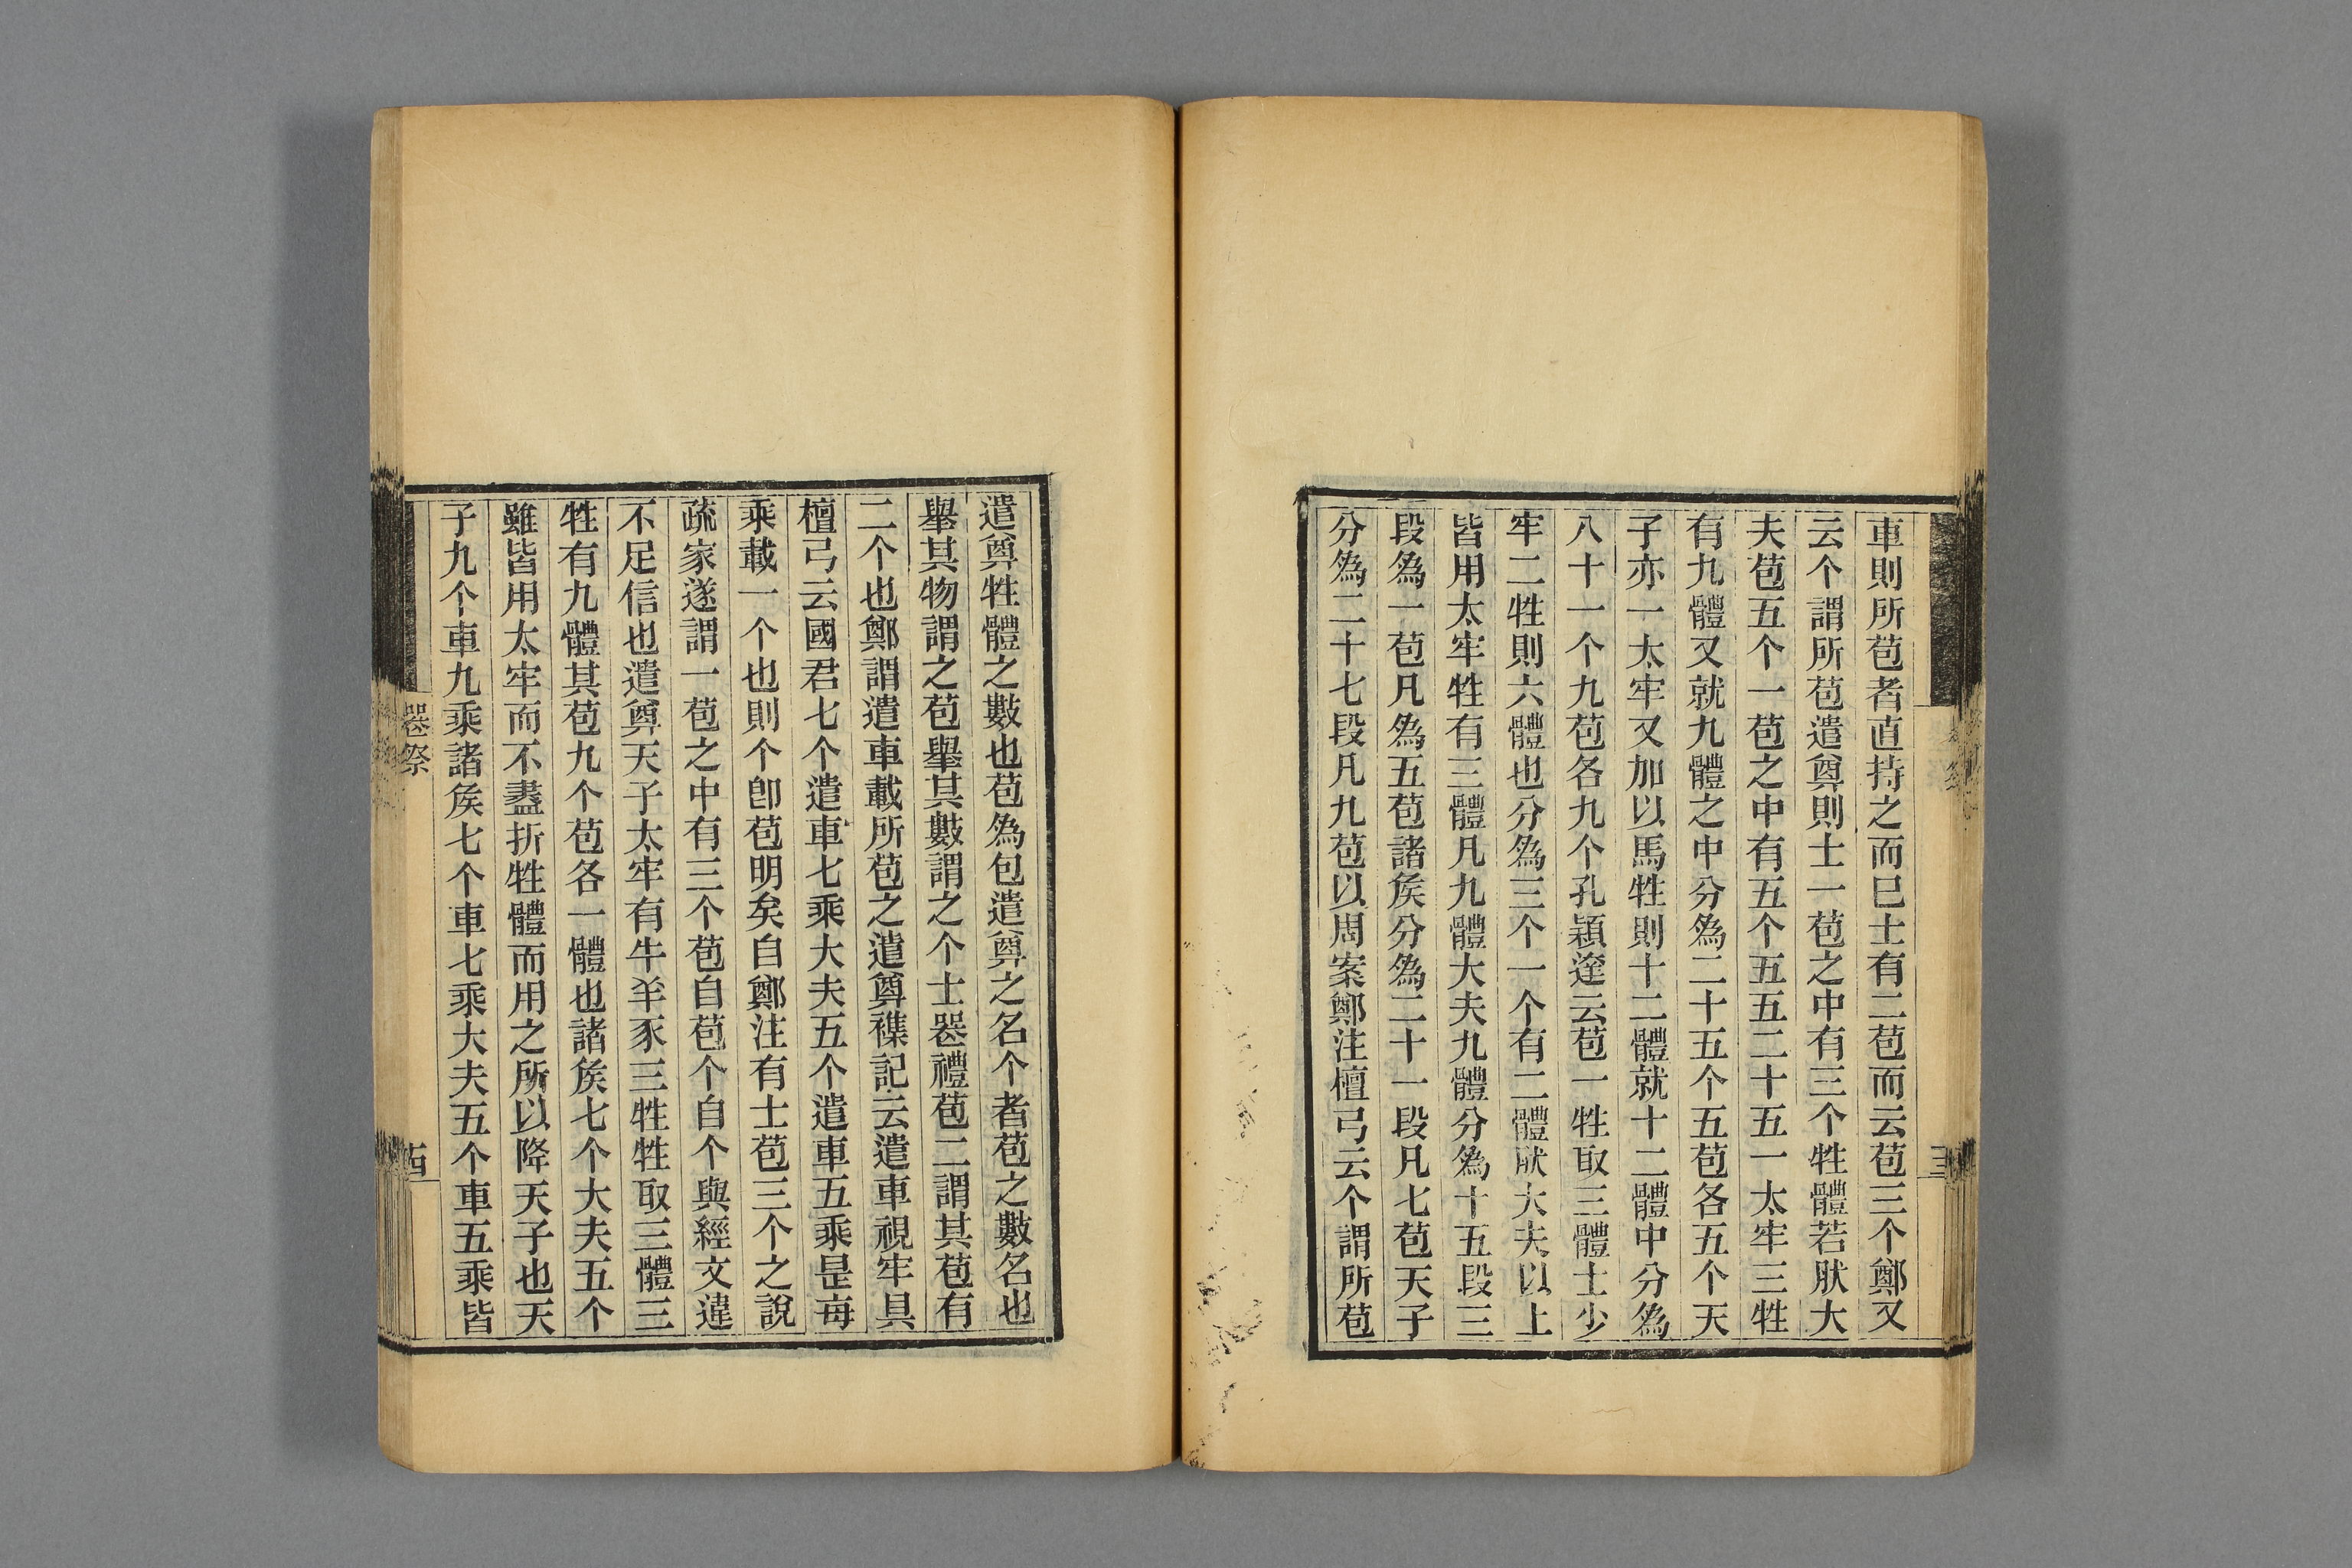 車則所苞者直持之而巳士有二苞而云苞三个鄭又
云个謂所苞遣奠則士一苞之中有三个牲體若肰大
夫苞五个一苞之中有五个五五二十五一太牢三牲
有九體又就九體之中分為二十五个五苞各五个天
子亦一太牢又加以馬牲則十二體就十二體中分為
八十一个九苞各九个孔穎達云苞一牲取三體士少
牢二牲則六體也分為三个一个有二體肰大夫以上
皆用太牢牲有三體凡九體大夫九體分為十五段三
段為一苞凡為五苞諸矦分為二十一段凡七苞天子
分為二十七段凡九苞以周案鄭注檀弓云个謂所苞
遣奠牲體之數也苞為包遣奠之名个者苞之數名也
舉其物謂之苞舉其數謂之个士器禮苞二謂其苞有
二个也鄭謂遣車載所苞之遣奠襍記云遣車視牢具
檀弓云國君七个遣車七乘大夫五个遣車五乘是每
乘載一个也則个卽苞明矣自鄭注有士苞三个之說
疏家遂謂一苞之中有三个苞自苞个自个與經文違
不足信也遣奠天子太牢有牛羊豕三牲牲取三體三
牲有九體其苞九个苞各一體也諸矦七个大夫五个
雖皆用太牢而不盡折牲體而用之所以降天子也天
子九个車九乘諸矦七个車七乘大夫五个車五乘皆